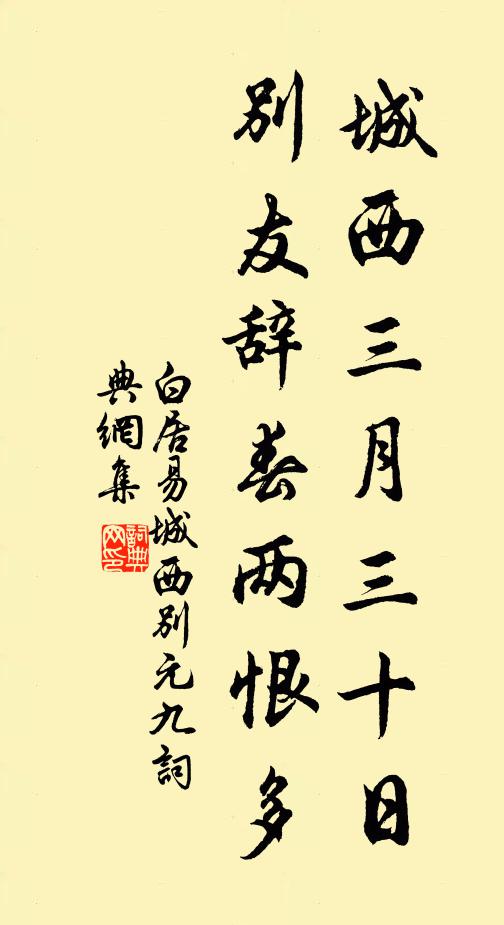 城西三月三十日
别友辞春两恨多
白居易城西别元九詞
典網集
詞典
网印